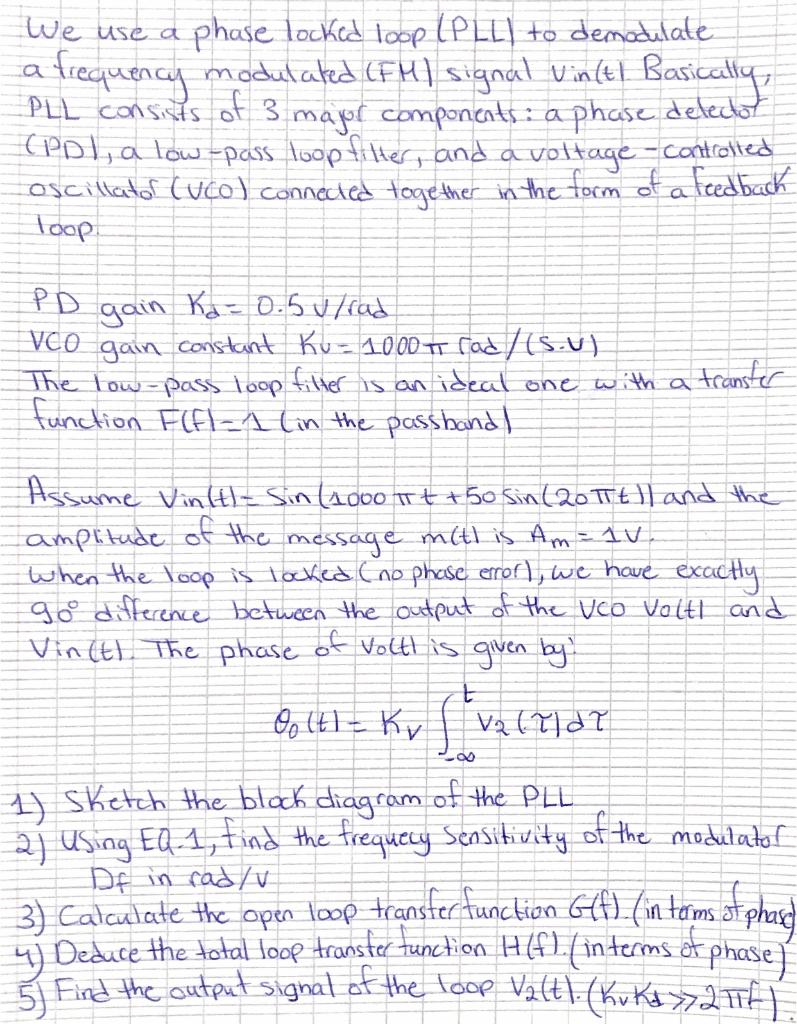 We use a phase locked loop (PLL) to demodulate
a frequency modulated (FM) signal Vin(t) Basically,
PLL consists of 3 major components: a phase detector
(PD), a low-pass loop filter, and a voltage-controlled
oscillator (VCO) connected together in the form of a feedback
loop.
PD gain Kd = 0.5 V/rad
VCO gain constant Kv = 1000π rad/(s.V)
The low-pass loop filter is an ideal one with a transfer
function F(f)=1 (in the passband)
Assume Vin(t)= Sin(1000πt + 50 Sin(20πt)) and the
amplitude of the message m(t) is Am = 1V.
When the loop is locked (no phase error), we have exactly
90° difference between the output of the VCO Vo(t) and
Vin(t). The phase of Vo(t) is given by:
θo(t) = Kv ∫_{-∞}^{t} V2(τ)dτ
1) Sketch the block diagram of the PLL
2) Using EQ.1, find the frequecy sensitivity of the modulator
Df in rad/V
3) Calculate the open loop transfer function G(f). (in terms of phase)
4) Deduce the total loop transfer function H(f). (in terms of phase)
5) Find the output signal of the loop V2(t). (KvKd >> 2πf).